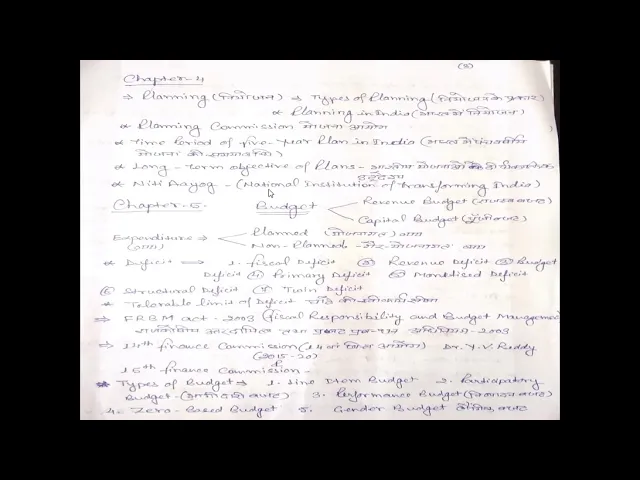 (3)
Chapter-4
⇒ Planning (नियोजन) ⇒ Types of Planning (नियोजन के प्रकार)
* Planning in India (भारत में नियोजन)
* Planning Commission योजना आयोग
* Time Period of five-Year Plan in India (भारत में पंचवर्षीय
योजना की समयावधि)
* Long-term objective of Plans - भारतीय योजनाओं के दीर्घकालिक
उद्देश्य
* Niti Aayog - (National Institution of transforming India)
Chapter-5. Budget Revenue Budget (राजस्व बजट)
Capital Budget (पूँजी बजट)
Expenditure Planned (योजनागत) व्यय
(व्यय) Non-Planned गैर-योजनागत व्यय
* Deficit ⇒ 1. fiscal Deficit ② Revenue Deficit ③ Budget
Deficit ④ Primary Deficit ⑤ Monetised Deficit
⑥ Structural Deficit ⑦ Twin Deficit
* Telorable limit of Deficit घाटे की
⇒ FRBM act - 2003 (fiscal Responsibility and Budget Management
राजकोषीय उत्तरदायित्व तथा बजट प्रबंधन अधिनियम-2003
⇒ 14th finance Commission (14 वां वित्त आयोग) Dr. Y.V. Reddy
(2015-20)
15th finance Commission -
* Types of Budget ⇒ 1. Line Item Budget 2. Participatory
Budget - बजट) 3. Performance Budget (निष्पादन बजट)
4- Zero-Based Budget 5. Gender Budget लैंगिक बजट